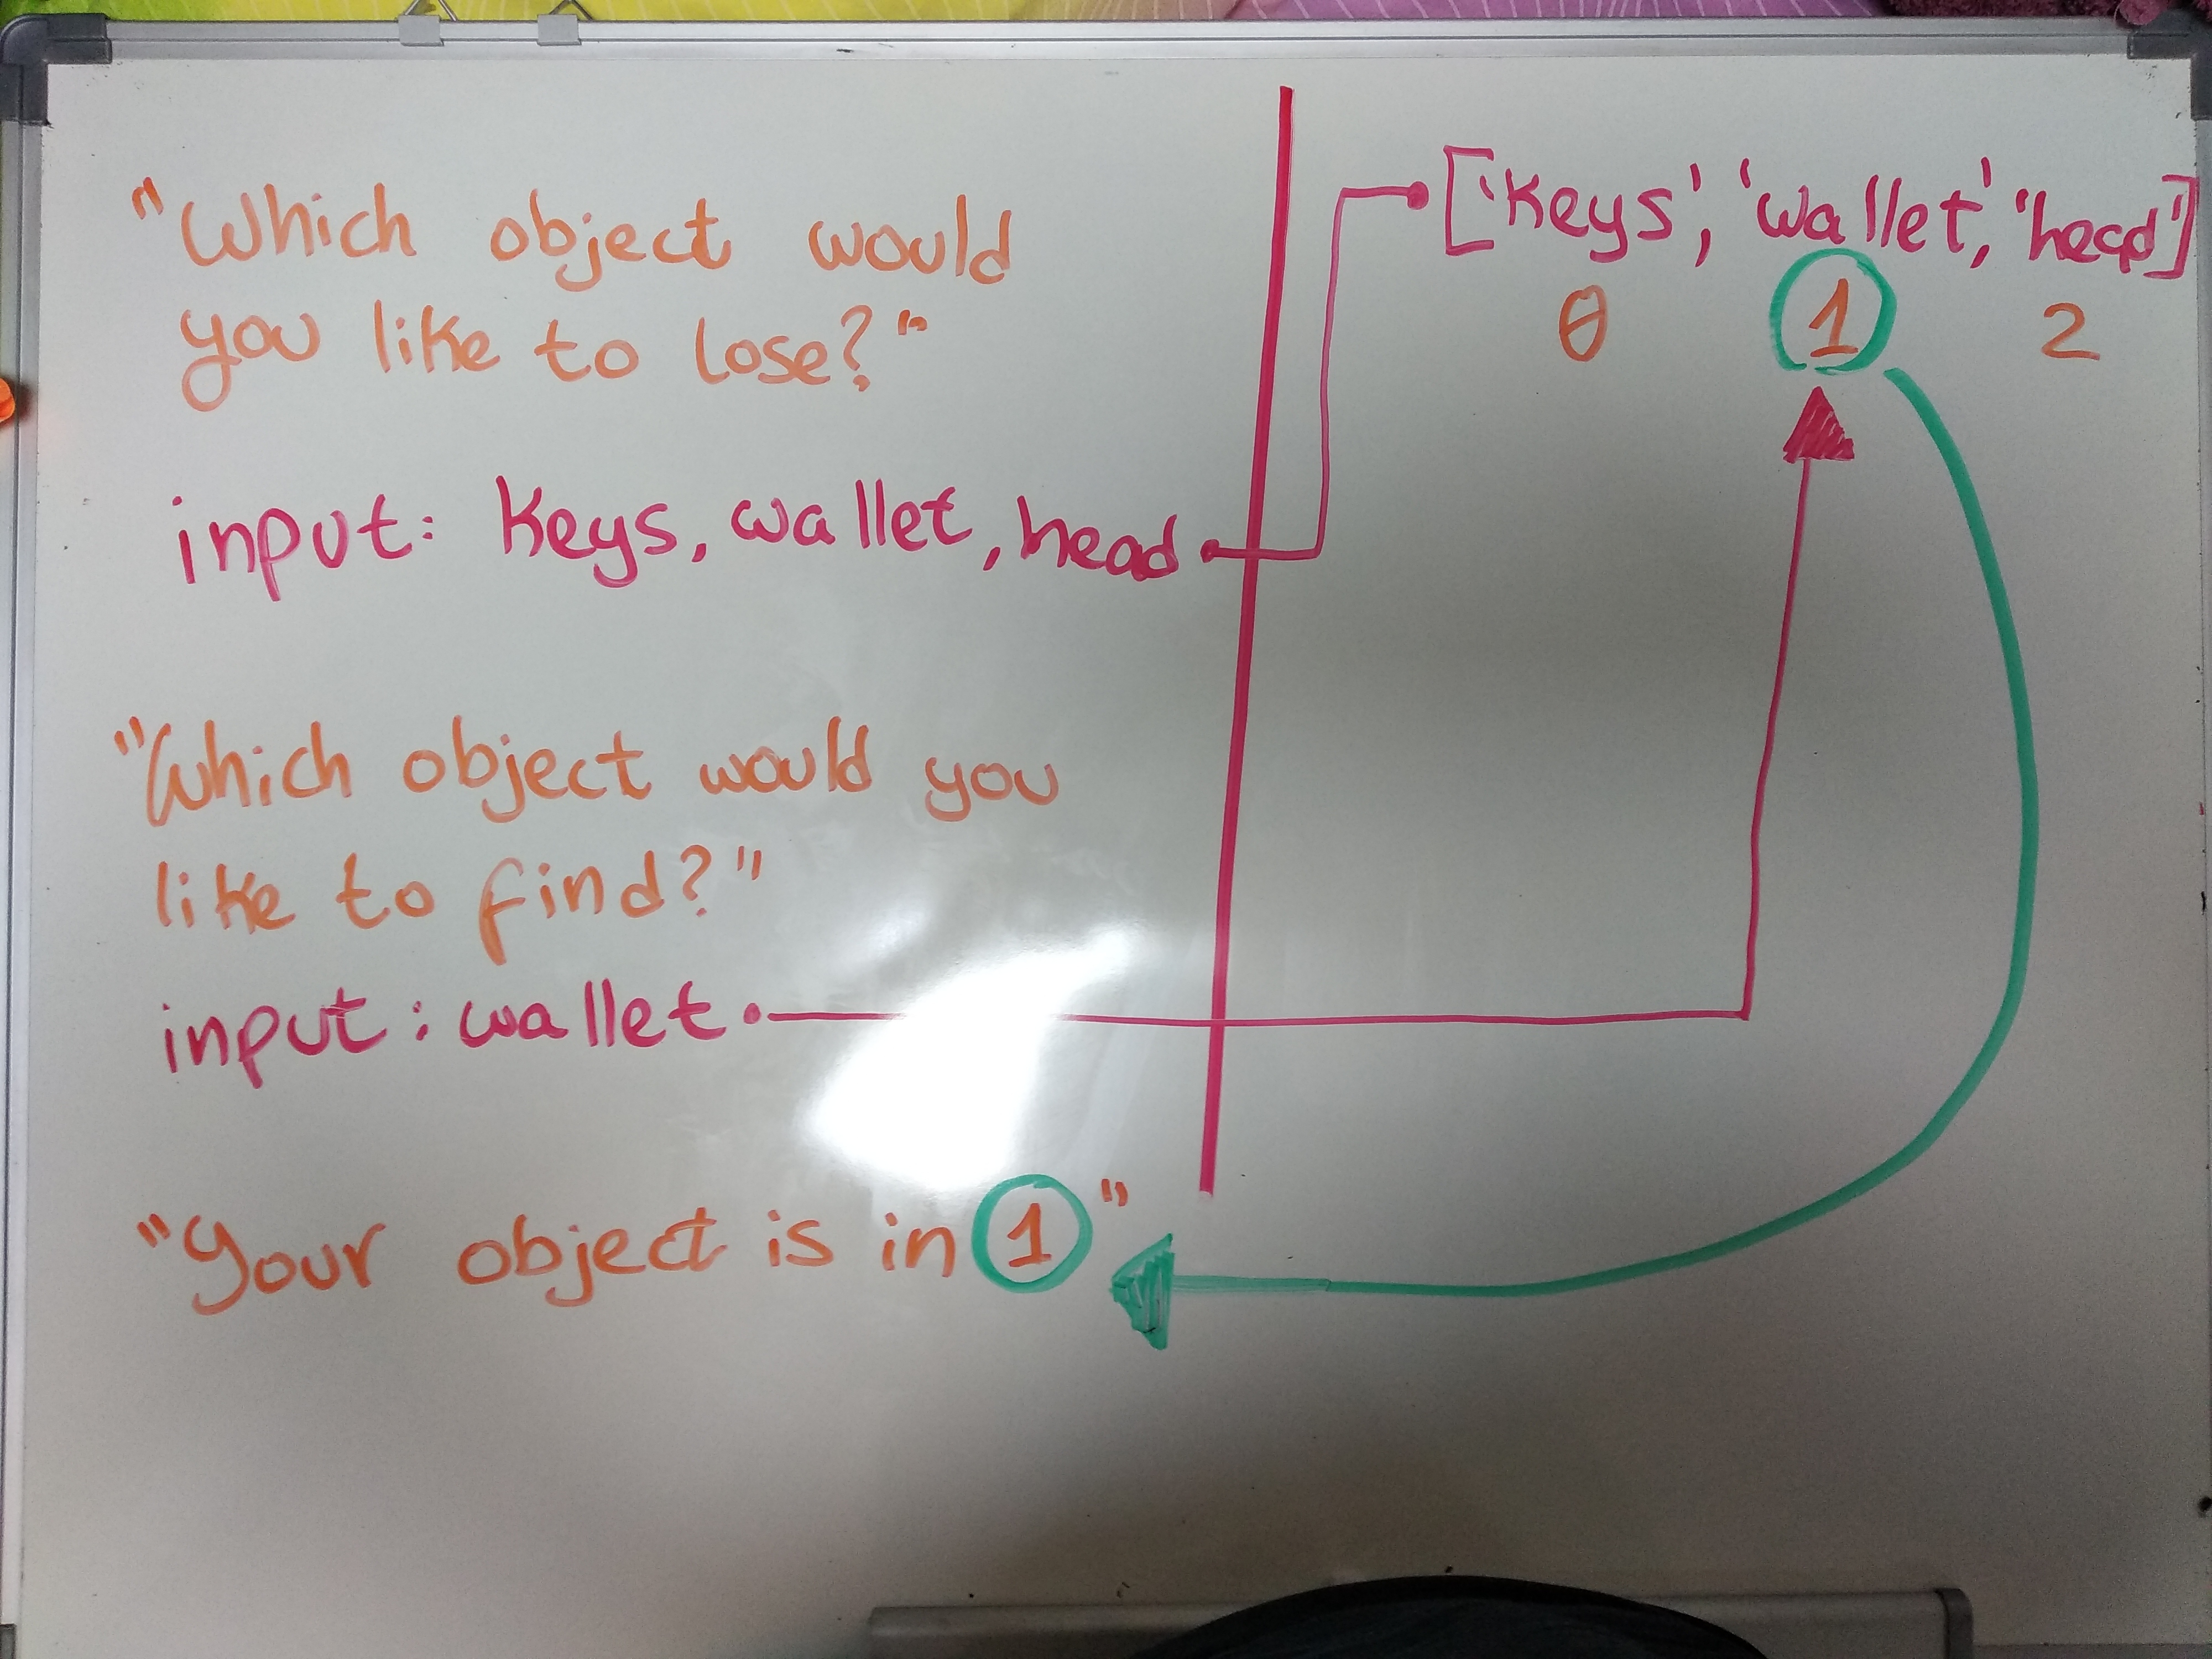 "Which object would
you like to lose?"
input: Keys, wallet, head
"Which object would you
like to find?"
input: wallet
"Your object is in 1"
['Keys', 'wallet', 'head']
0 1 2